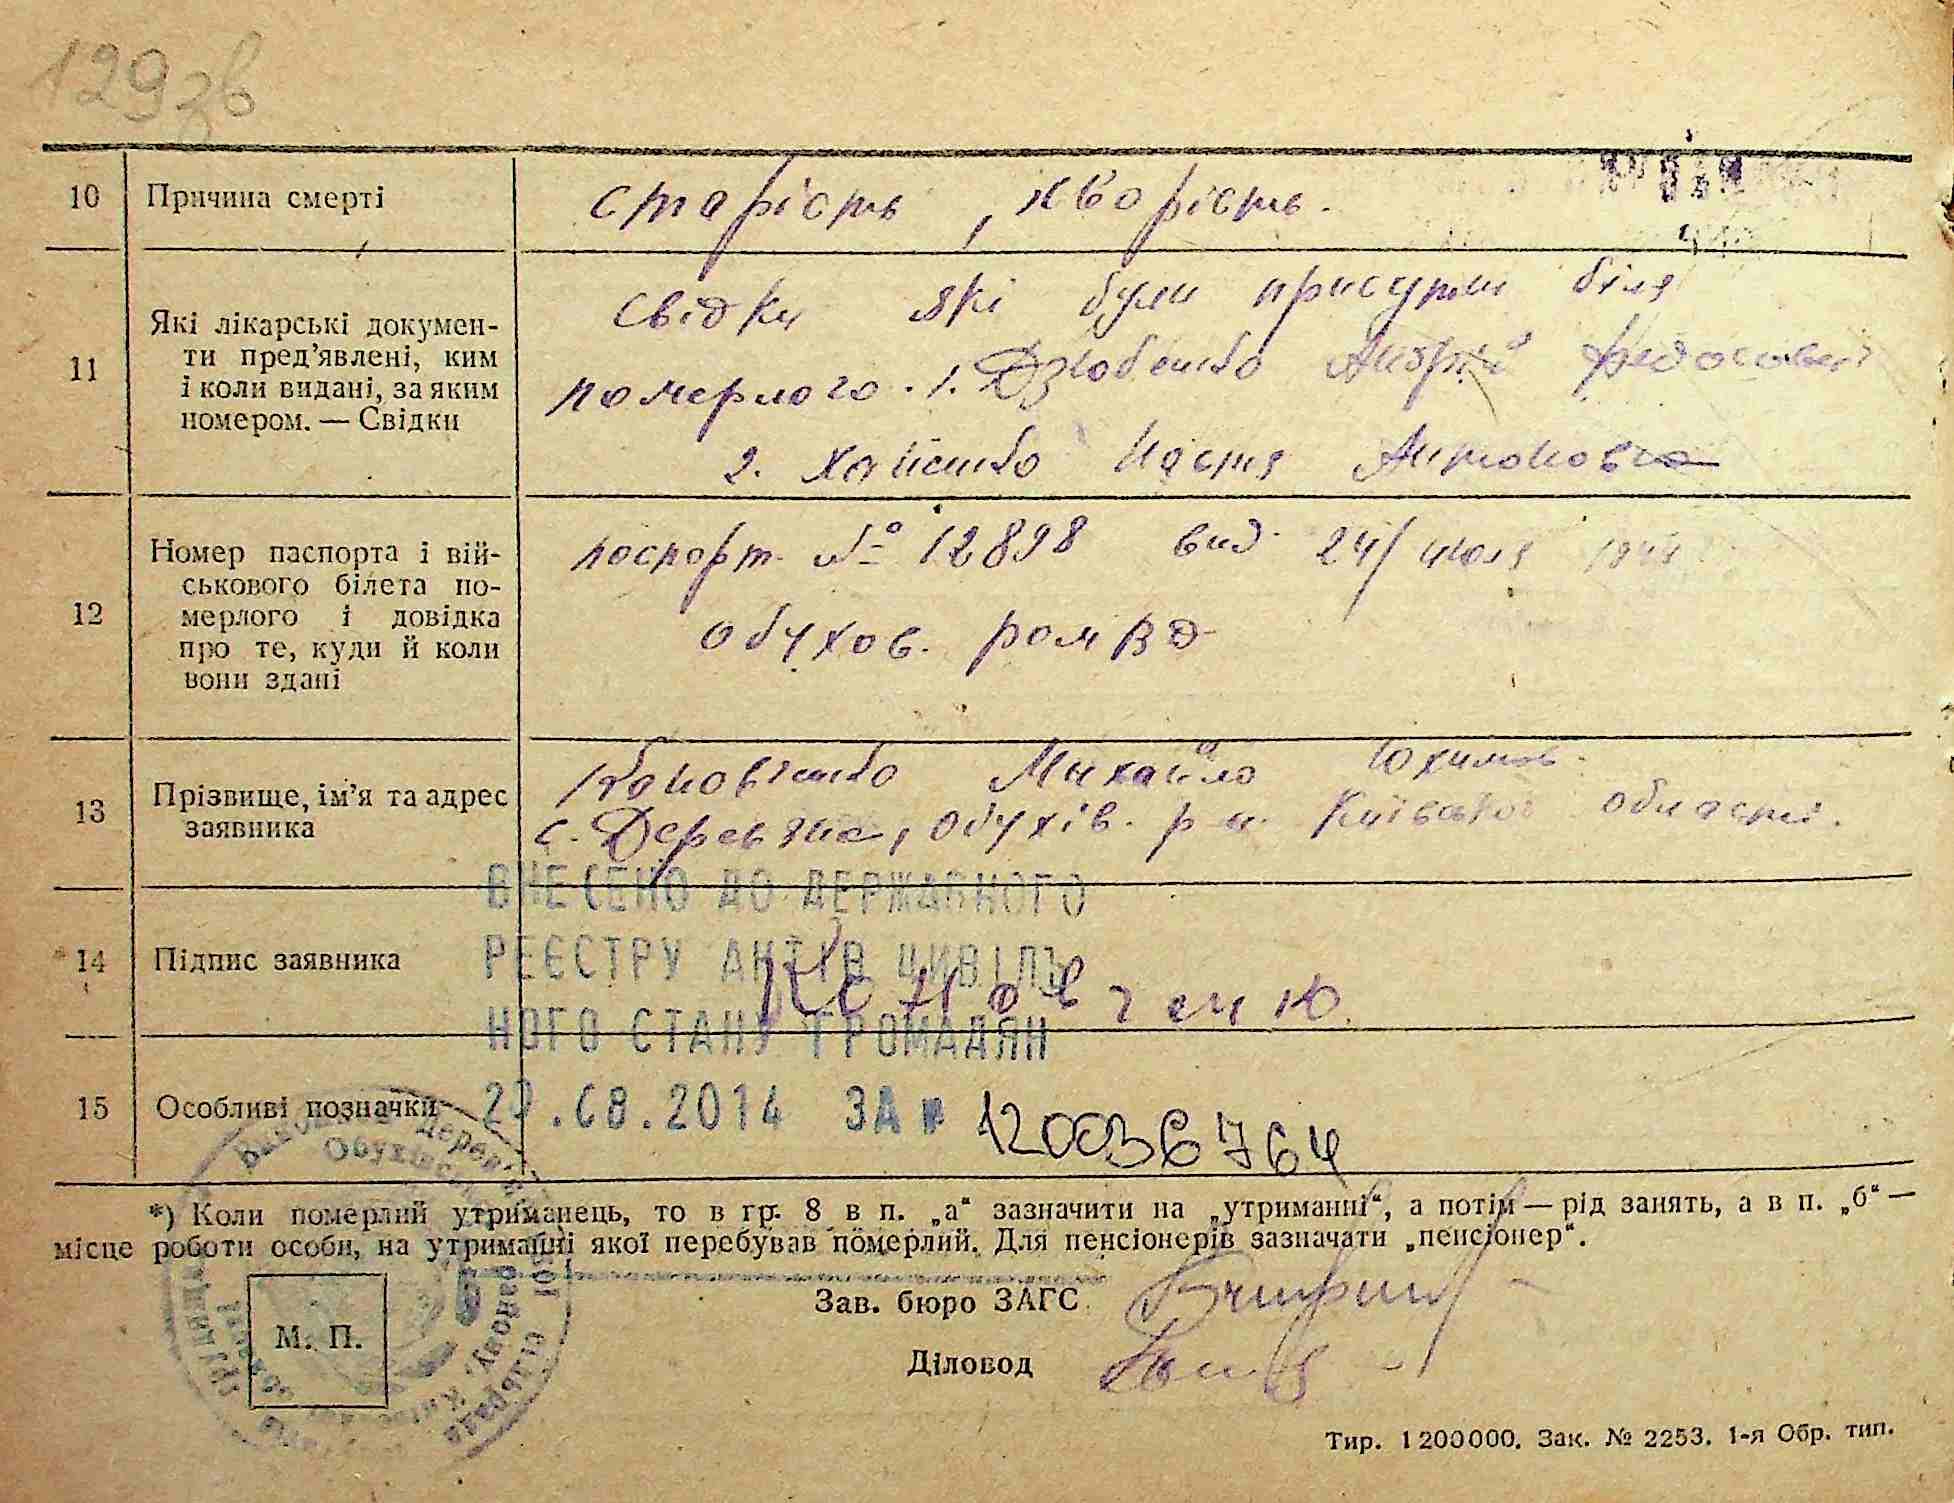 129зв
10 Причина смерті старість, хворість.
11 Які лікарські докумен-
ти пред'явлені, ким
і коли видані, за яким
номером. — Свідки
Свідки які були присутні біля
померлого. 1. Дзюбенко Андрій Федосович
2. Хайенко Настя Антоновна
12 Номер паспорта і вій-
ськового білета по-
мерлого і довідка
про те, куди й коли
вони здані
паспорт № 12898 вид. 24/июля 1944
Обухов. РОМВД
13 Прізвище, ім'я та адрес
заявника
Кановченко Михайло Юхимов.
с. Деревяна, Обухів. р-н. Київської області.
14 Підпис заявника
15 Особливі позначки
ВНЕСЕНО ДО ДЕРЖАВНОГО
РЕЄСТРУ АКТІВ ЦИВІЛЬ
НОГО СТАНУ ГРОМАДЯН
.08.2014 ЗА № 120036764
*) Коли померлий утриманець, то в гр. 8 в п. „а“ зазначити на „утриманні“, а потім — рід занять, а в п. „б“ —
місце роботи особи, на утриманні якої перебував померлий. Для пенсіонерів зазначати „пенсіонер“.
М. П.
Зав. бюро ЗАГС
Діловод
Тир. 1200000. Зак. № 2253. 1-я Обр. тип.